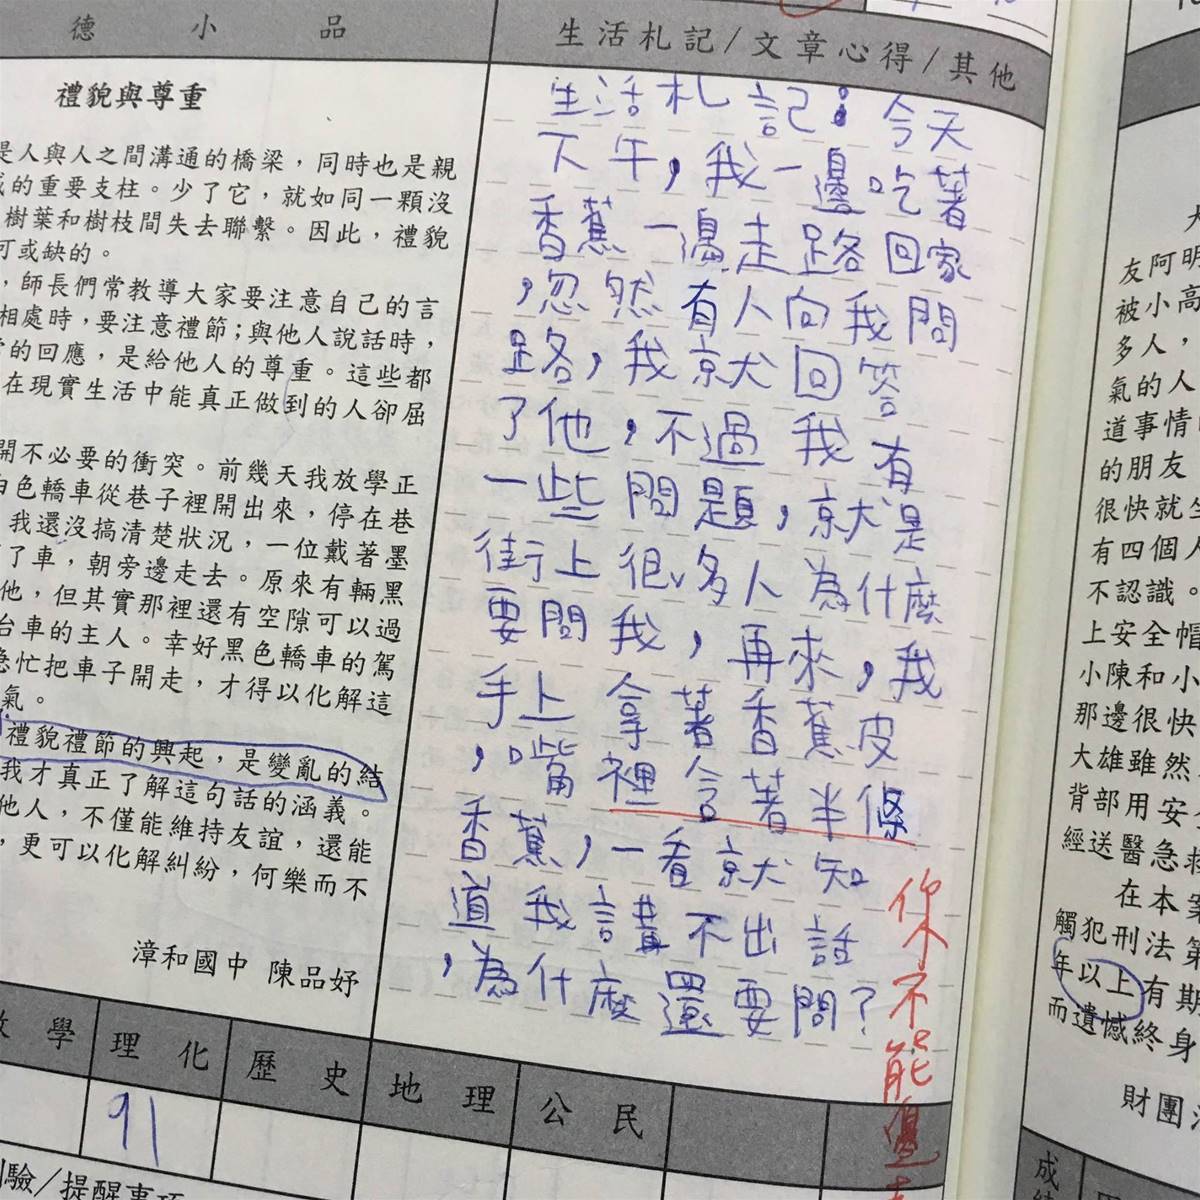 德小品
禮貌與尊重
是人與人之間溝通的橋梁，同時也是親
的重要支柱。少了它，就如同一顆沒
樹葉和樹枝間失去聯繫。因此，禮貌
可或缺的。
，師長們常教導大家要注意自己的言
相處時，要注意禮節；與他人說話時，
的回應，是給他人的尊重。這些都
在現實生活中能真正做到的人卻屈
開不必要的衝突。前幾天我放學正
白色轎車從巷子裡開出來，停在巷
我還沒搞清楚狀況，一位戴著墨
了車，朝旁邊走去。原來有輛黑
他，但其實那裡還有空隙可以過
台車的主人。幸好黑色轎車的駕
急忙把車子開走，才得以化解這
氣。
禮貌禮節的興起，是變亂的結
我才真正了解這句話的涵義。
他人，不僅能維持友誼，還能
，更可以化解糾紛，何樂而不
漳和國中 陳品妤
生活札記/文章心得/其他
生活札記：今天
下午，我一邊吃著
香蕉一邊走路回家
，忽然有人向我問
路，我就回答
了他，不過我有
一些問題，就是
街上很多人為什麼
要問我，再來，我
手上拿著香蕉皮
，嘴裡含著半條
香蕉，一看就知
道我講不出話
，為什麼還要問？
你不能邊走
學 理化 歷史 地理 公民
91
驗/提醒事項
大
友阿明
被小高
多人，
氣的人
道事情
的朋友
很快就
有四個人
不認識。
上安全帽
小陳和小
那邊很快
大雄雖然
背部用安
經送醫急救
在本案
觸犯刑法第
年以上有期
而遺憾終身
財團
成